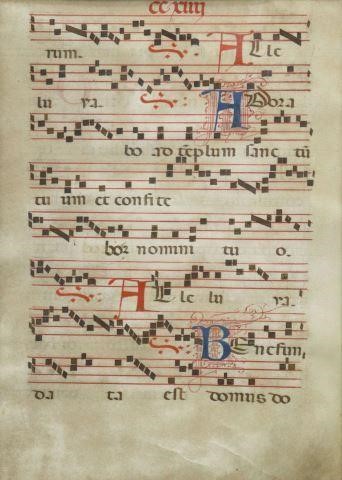 ccxiiij
rum. Alle
lu ya. Adora
bo ad tēplum sanc tū
tu um et confite
bor nomini tu o.
Alle lu ya.
Bene fun
da ta est domus do